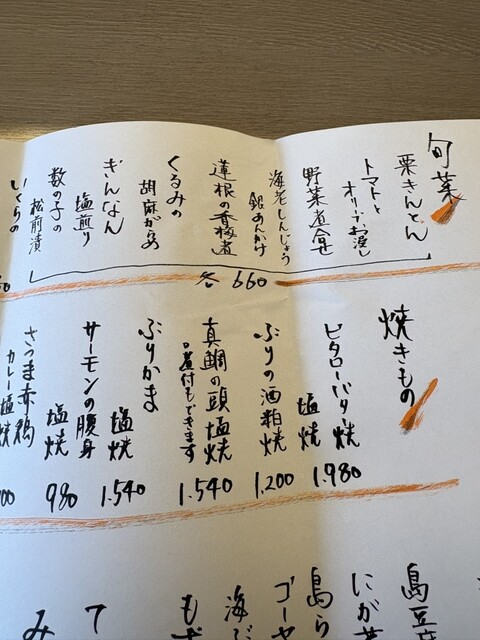 旬菜
栗きんとん
トマトと
オリーブお浸し
野菜煮合せ
海老しんじょう
銀あんかけ
蓮根の香梅煮
くるみの
胡麻がらめ
ぎんなん
塩煎り
数の子の
松前漬
いくらの
各 660
焼きもの
ヒタローバター焼
塩焼
1.980
ぶりの酒粕焼
1.200
真鯛の頭塩焼
煮付もできます
1.540
ぶりかま
塩焼
1.540
サーモンの腹身
塩焼
980
さつま赤鶏
カレー塩焼
島豆
にが
島ら
ゴーヤ
海ぶ
もず
て
み